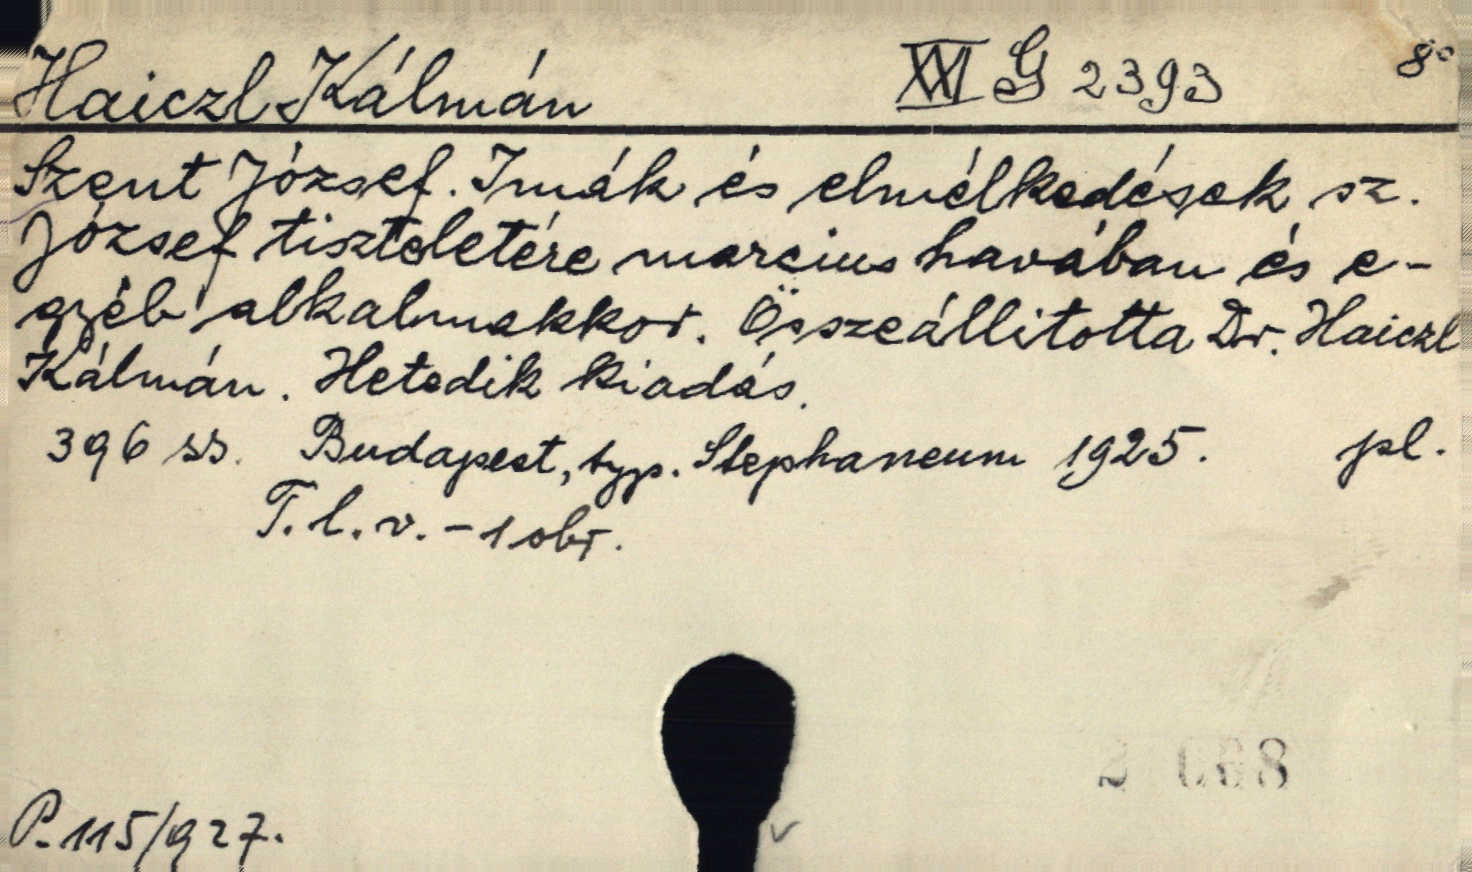 Haiczl Kálmán XXI G 2393 8°
Szent József. Imák és elmélkedések sz.
József tiszteletére marcius havában és e-
gyéb alkalmakkor. Összeállitotta Dr. Haiczl
Kálmán. Hetedik kiadás.
396 ss. Budapest, typ. Stephaneum 1925. pl.
T. l. v. - 1 obr.
P. 115/927.